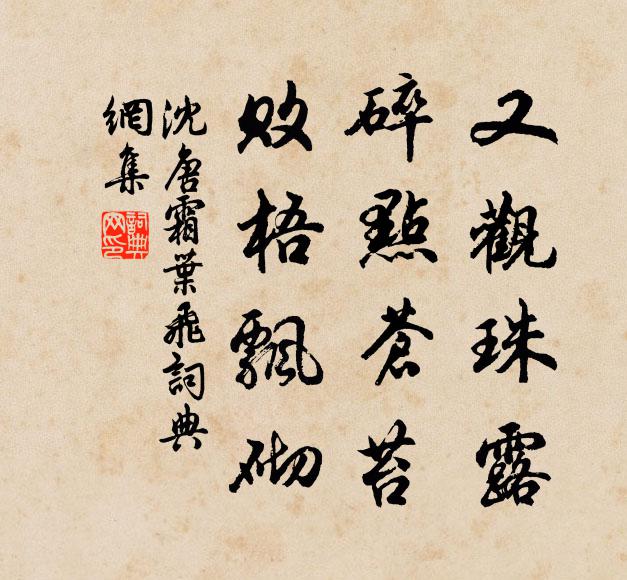 又觀珠露
碎點蒼苔
敗梧飄砌
沈唐霜葉飛詞典
網集
詞典
网印